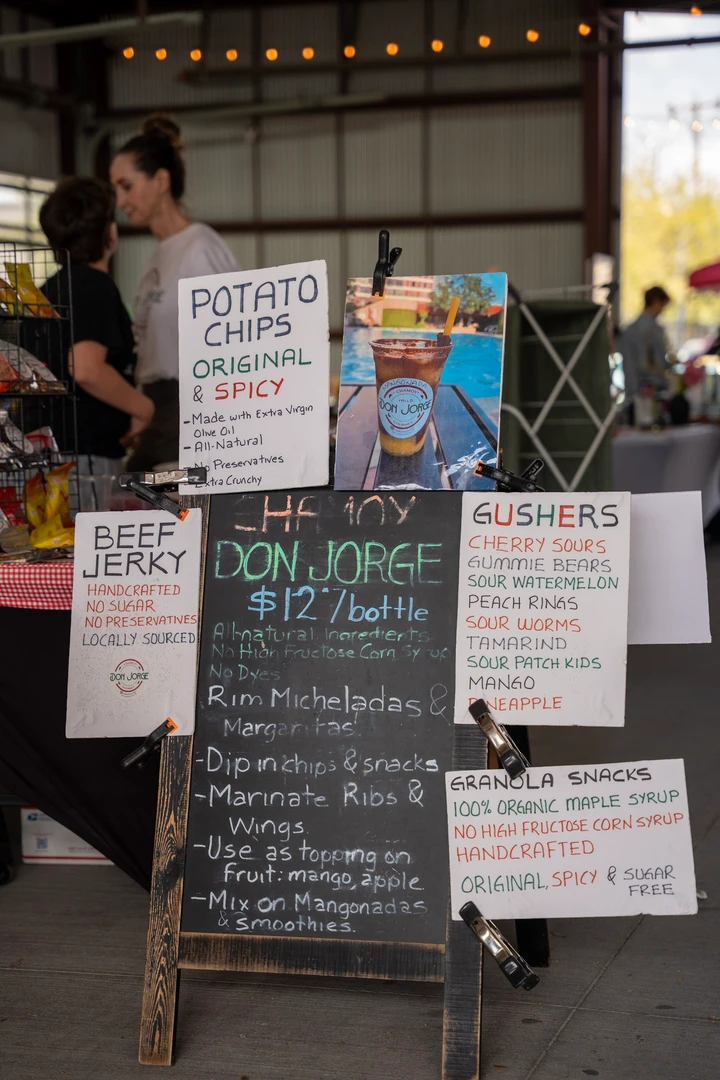 POTATO
CHIPS
ORIGINAL
& SPICY
-Made with Extra Virgin
Olive Oil
-All-Natural
No Preservatives
Extra Crunchy
CHAMOY
DON JORGE
BEEF
JERKY
HANDCRAFTED
NO SUGAR
NO PRESERVATIVES
LOCALLY SOURCED
DON JORGE
CHAMOY
DON JORGE
$12/bottle
All natural ingredients
No High Fructose Corn Syrup
No Dyes
Rim Micheladas &
Margaritas
-Dip in chips & snacks
-Marinate Ribs &
Wings
-Use as topping on
fruit: mango, apple
-Mix on Mangonadas
& smoothies.
GUSHERS
CHERRY SOURS
GUMMIE BEARS
SOUR WATERMELON
PEACH RINGS
SOUR WORMS
TAMARIND
SOUR PATCH KIDS
MANGO
PINEAPPLE
GRANOLA SNACKS
100% ORGANIC MAPLE SYRUP
NO HIGH FRUCTOSE CORN SYRUP
HANDCRAFTED
ORIGINAL, SPICY & SUGAR
FREE